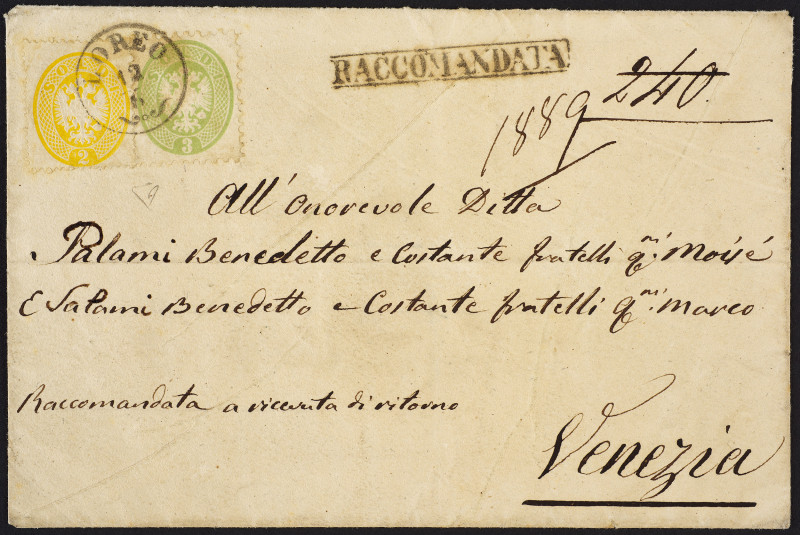 LOREO
12
SO
2
3
RACCOMANDATA
240.
1889
All' Onorevole Ditta
Salami Benedetto e Costante fratelli qm. Moisé
E Salami Benedetto e Costante fratelli qm. Marco
Raccomandata a ricevuta di ritorno
Venezia